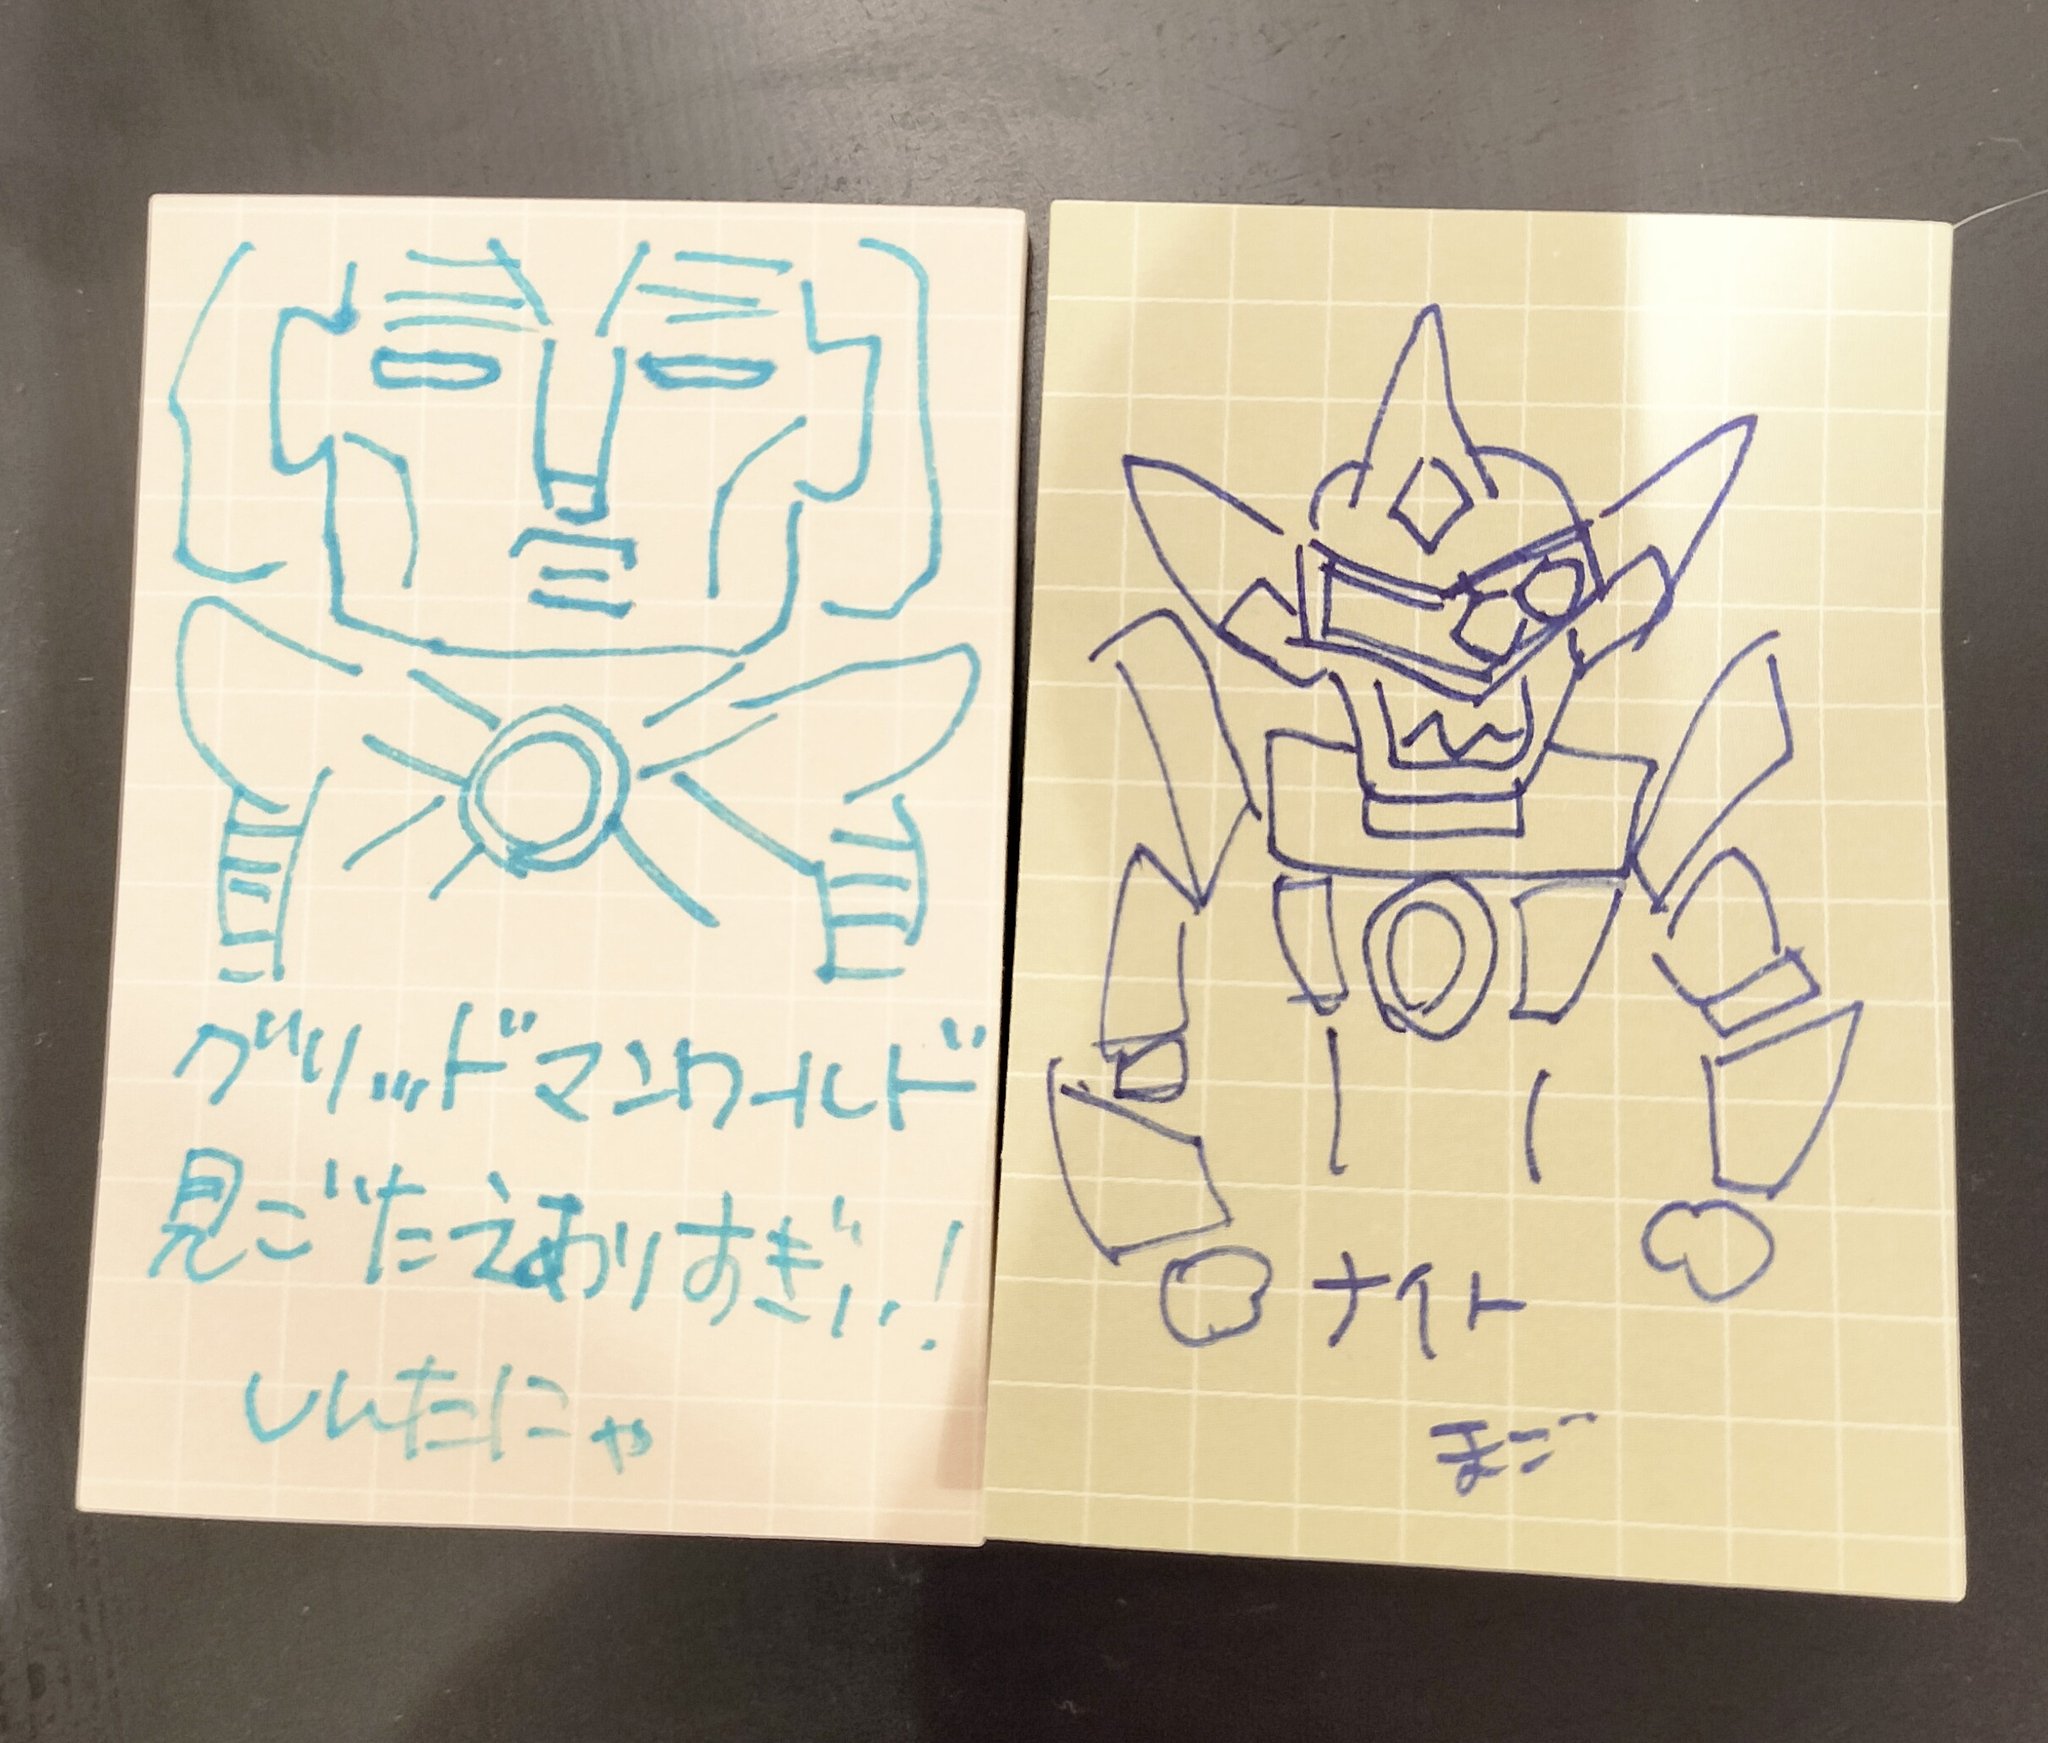 グリッドマンワールド
見ごたえありすぎぃ!
しんたにゃ
ナイト
まご